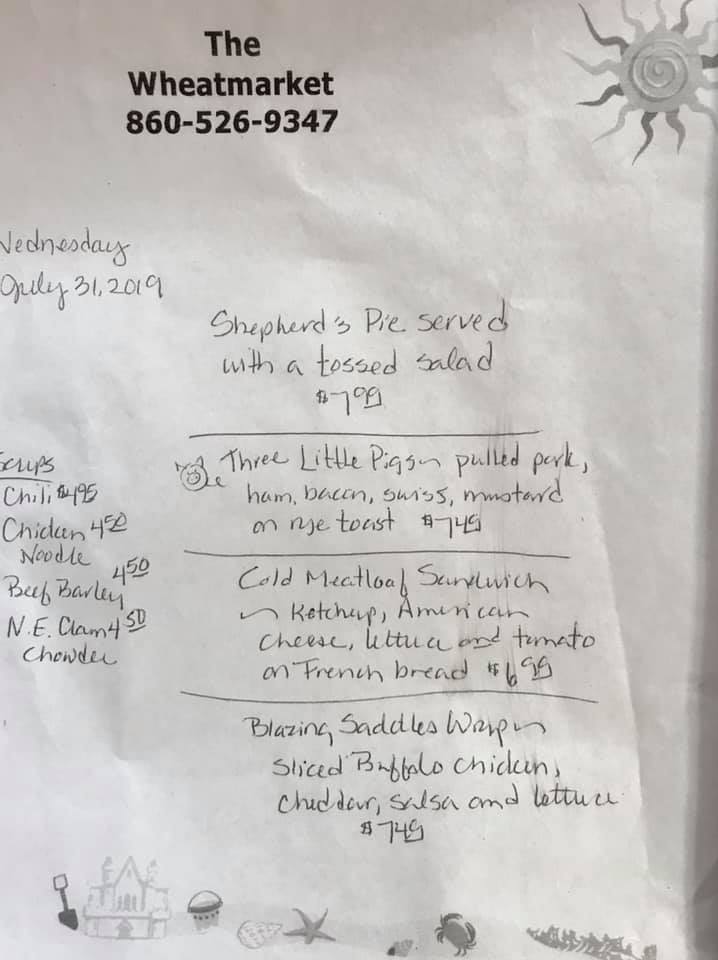 The
Wheatmarket
860-526-9347
Wednesday
July 31, 2019
Shepherd's Pie served
with a tossed salad
$7.99
Three Little Pigs w pulled pork,
ham, bacon, swiss, mustard
on rye toast $7.49
Cold Meatloaf Sandwich
w Ketchup, American
cheese, lettuce and tomato
on French bread $6.99
Blazing Saddles Wrap w
Sliced Buffalo chicken,
cheddar, salsa and lettuce
$7.49
Soups
Chili $4.95
Chicken 4.50
Noodle
Beef Barley 4.50
N.E. Clam 4.50
Chowder